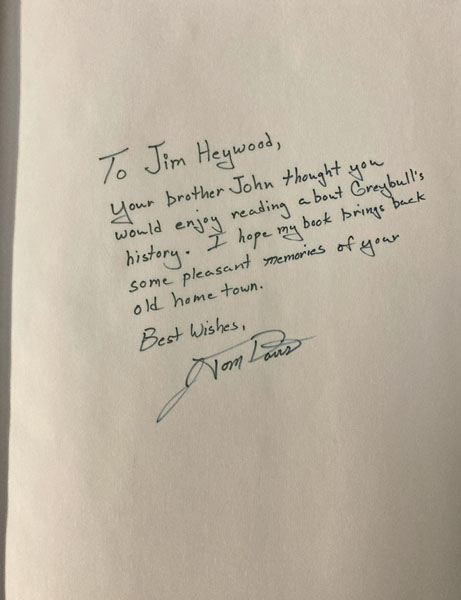 To Jim Heywood,
Your brother John thought you
would enjoy reading about Greybull's
history. I hope my book brings back
some pleasant memories of your
old home town.
Best Wishes,
Tom Davis